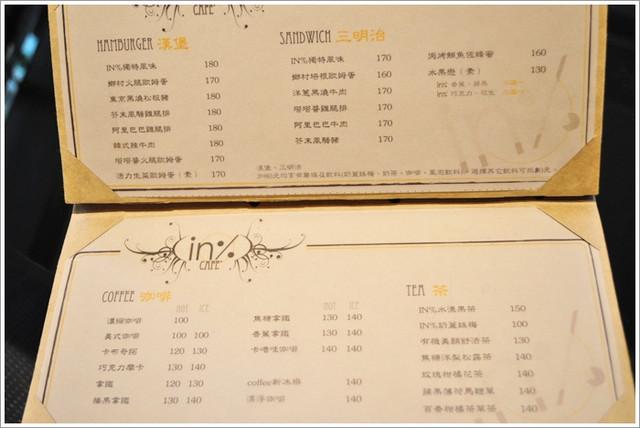 CAFE'
HAMBURGER 漢堡
IN%獨特風味 180
鄉村火腿歐姆蛋 170
東京黑燒松板豬 180
芥末風騷雞腿排 180
塔塔醬雞腿排 170
阿里巴巴雞腿排 180
韓式辣牛肉 180
塔塔醬火腿歐姆蛋 170
活力生菜歐姆蛋(素) 170
SANDWICH 三明治
IN%獨特風味 170
鄉村培根歐姆蛋 160
洋蔥黑燒牛肉 170
塔塔醬雞腿排 170
阿里巴巴牛肉 170
芥末風騷豬 170
160
水果戀(素) 130
漢堡、三明治
in%
CAFE'
COFFEE 咖啡
HOT ICE
濃縮咖啡 100
美式咖啡 100 100
卡布奇諾 120 130
巧克力摩卡 130 140
拿鐵 120 130
榛果拿鐵 130 140
HOT ICE
焦糖拿鐵 130 140
香草拿鐵 130 140
卡嚕哇咖啡 140 140
coffee新冰樂 140
漂浮咖啡 140
TEA 茶
IN%水漾果茶 150
IN%奶蓋絲梅 100
有機美顏舒活茶 130
焦糖洋梨松露茶 130
玫瑰柑橘花茶 130
蘋果薄荷馬鞭草 140
百香柑橘茶菓茶 140